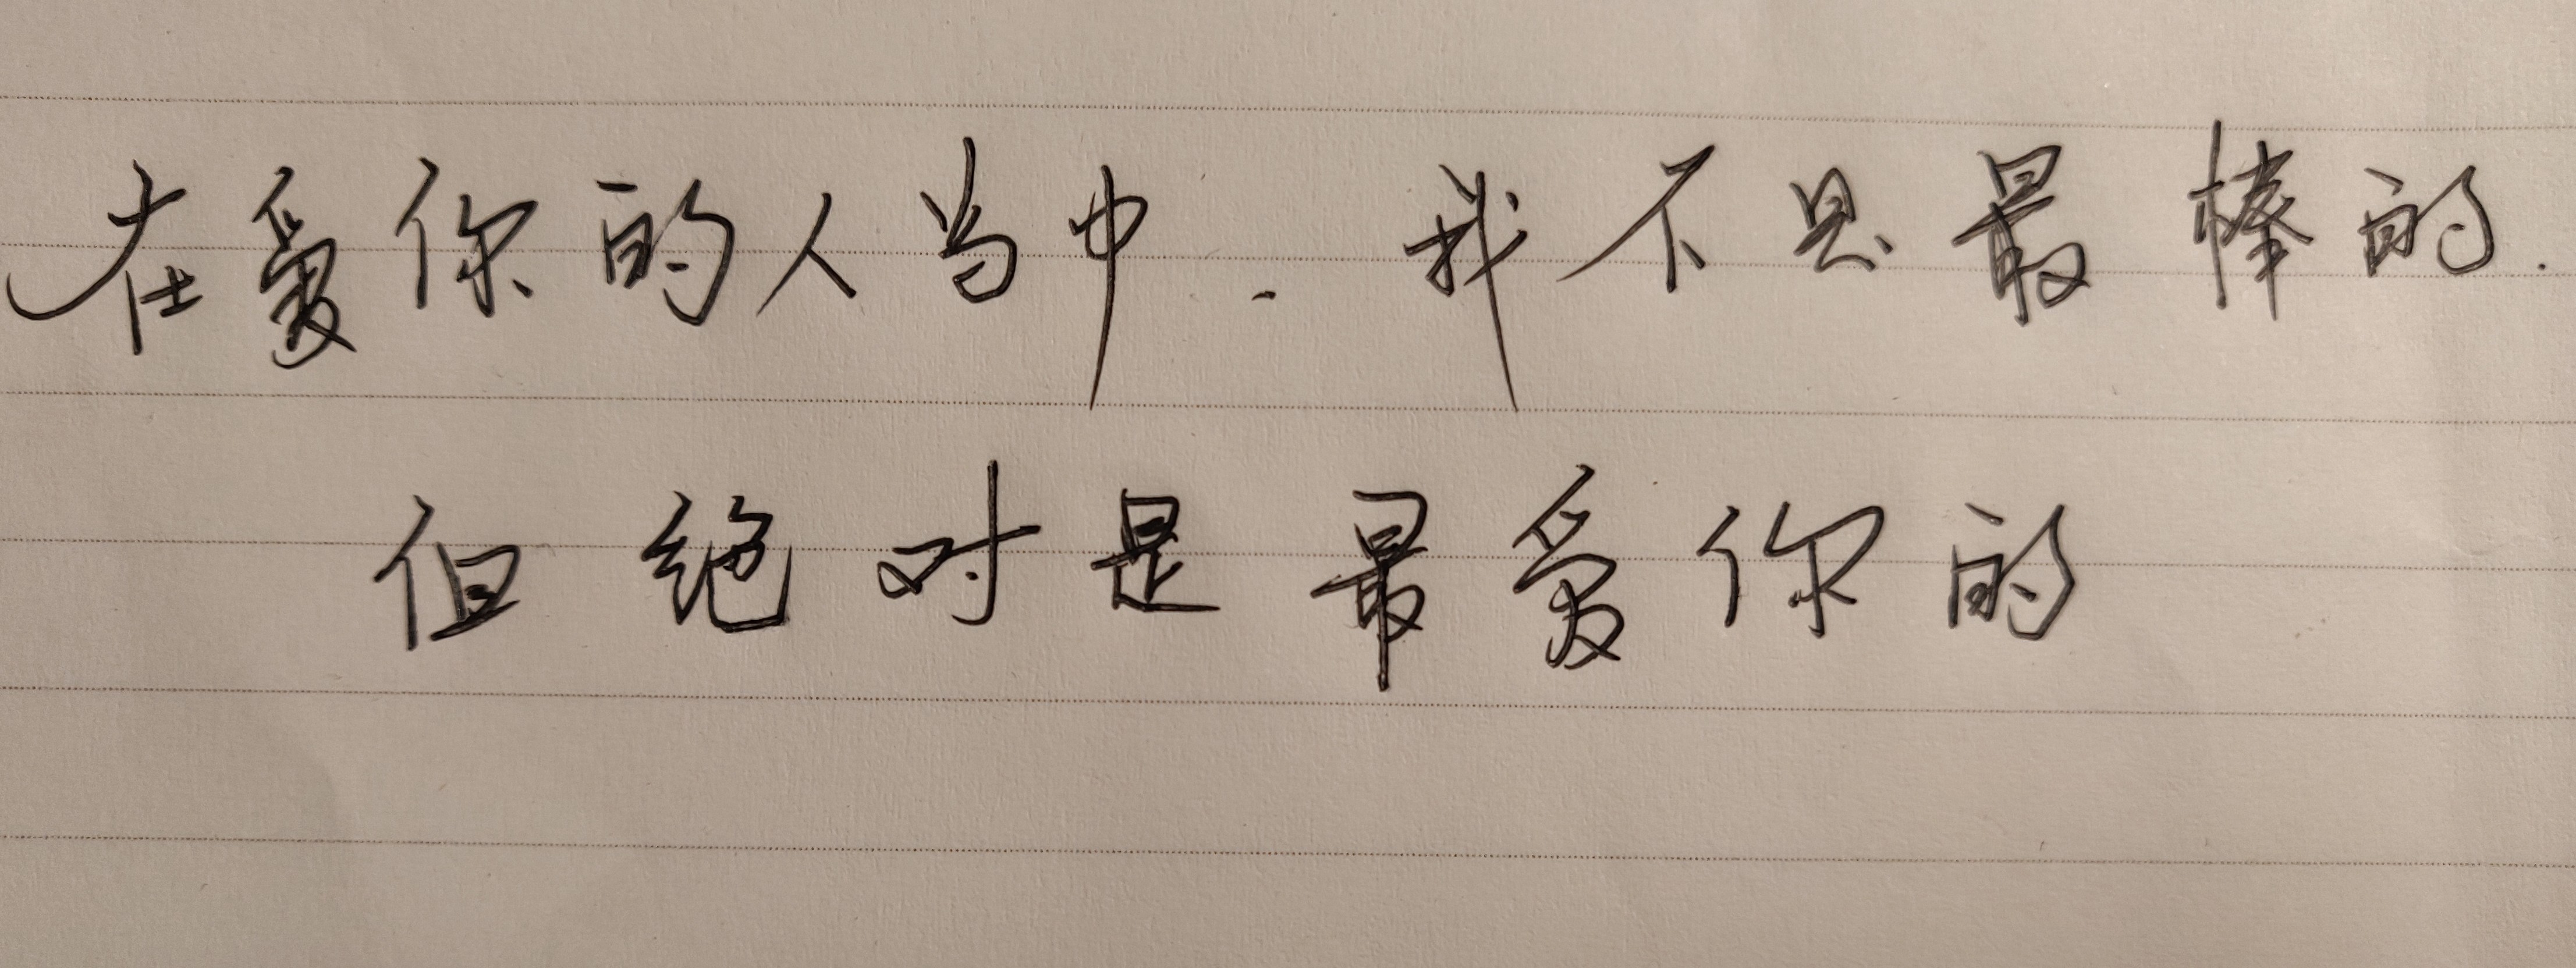 在爱你的人当中. 我不是最棒的.
但绝对是最爱你的